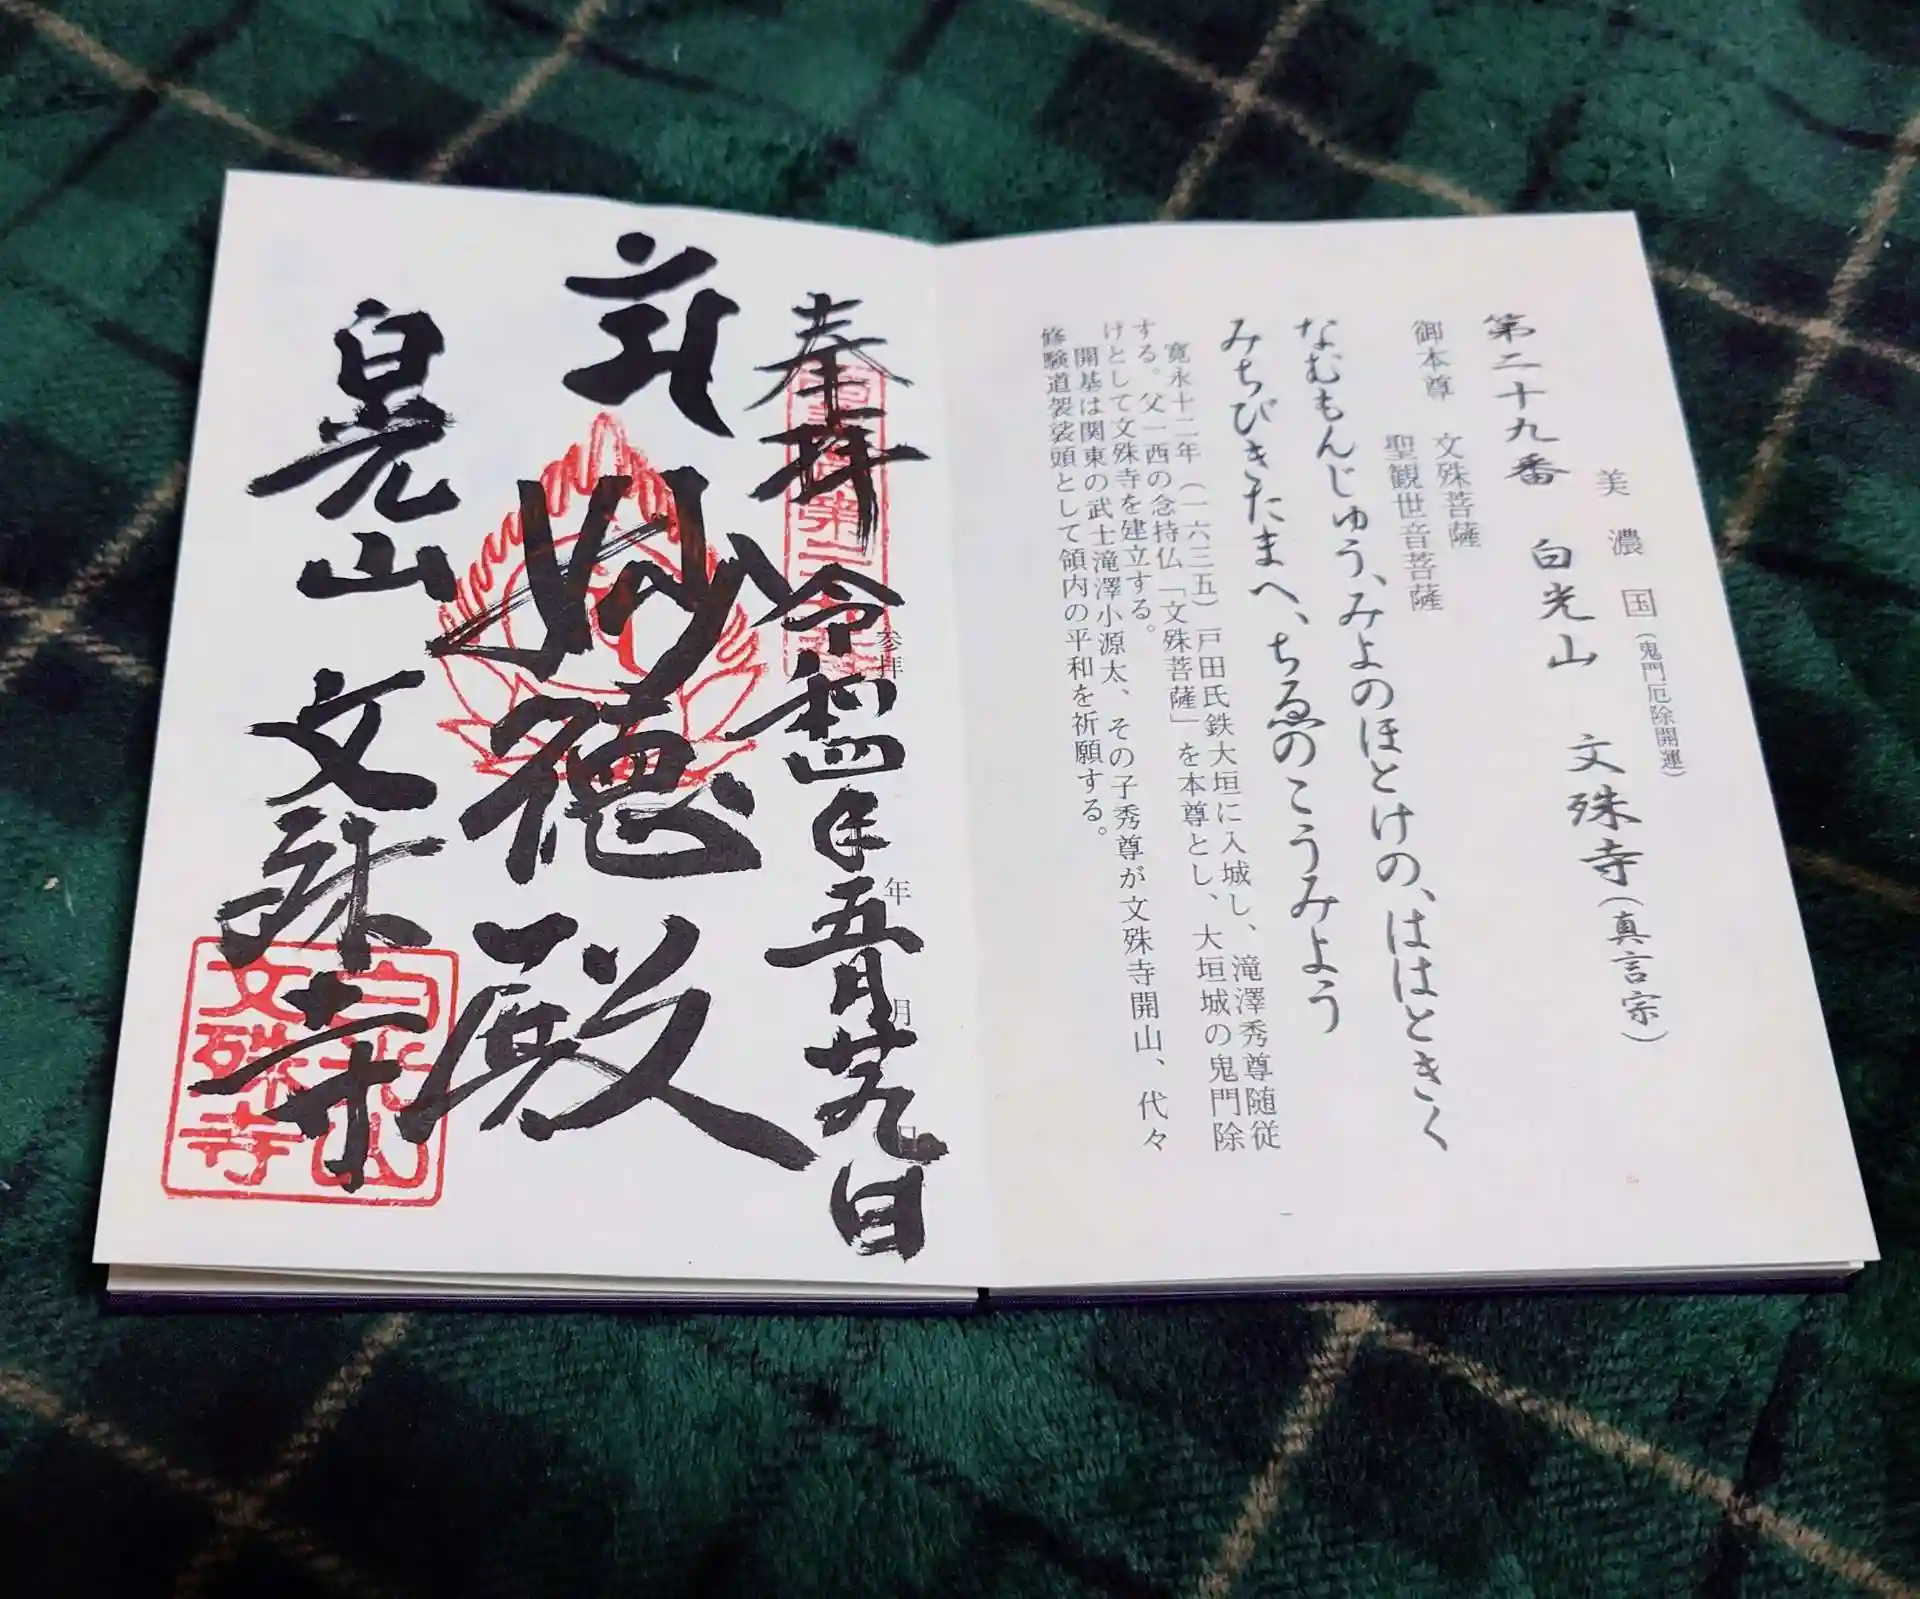 美濃国（鬼門厄除開運）
第二十九番　白光山　文殊寺（真言宗）
御本尊　文殊菩薩
聖観世音菩薩
なむもんじゅう、みよのほとけの、ははときく
みちびきたまへ、ちゑのこうみよう
寛永十二年（一六三五）戸田氏鉄大垣に入城し、滝澤秀尊随従
する。父一西の念持仏「文殊菩薩」を本尊とし、大垣城の鬼門除
けとして文殊寺を建立する。
開基は関東の武士滝澤小源太、その子秀尊が文殊寺開山、代々
修験道袈裟頭として領内の平和を祈願する。
奉拝　令和四年五月廿九日
参拝　年　月　日
妙徳殿
白光山　文殊寺
白光山
文殊寺